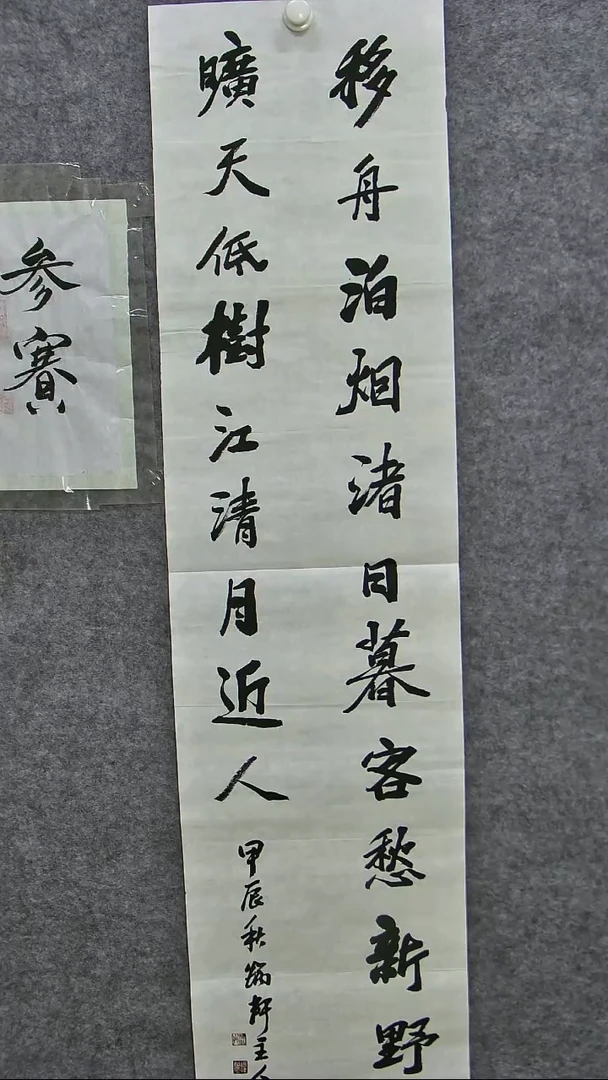 移舟泊烟渚日暮客愁新野
曠天低樹江清月近人
甲辰秋 軒主人
参賽